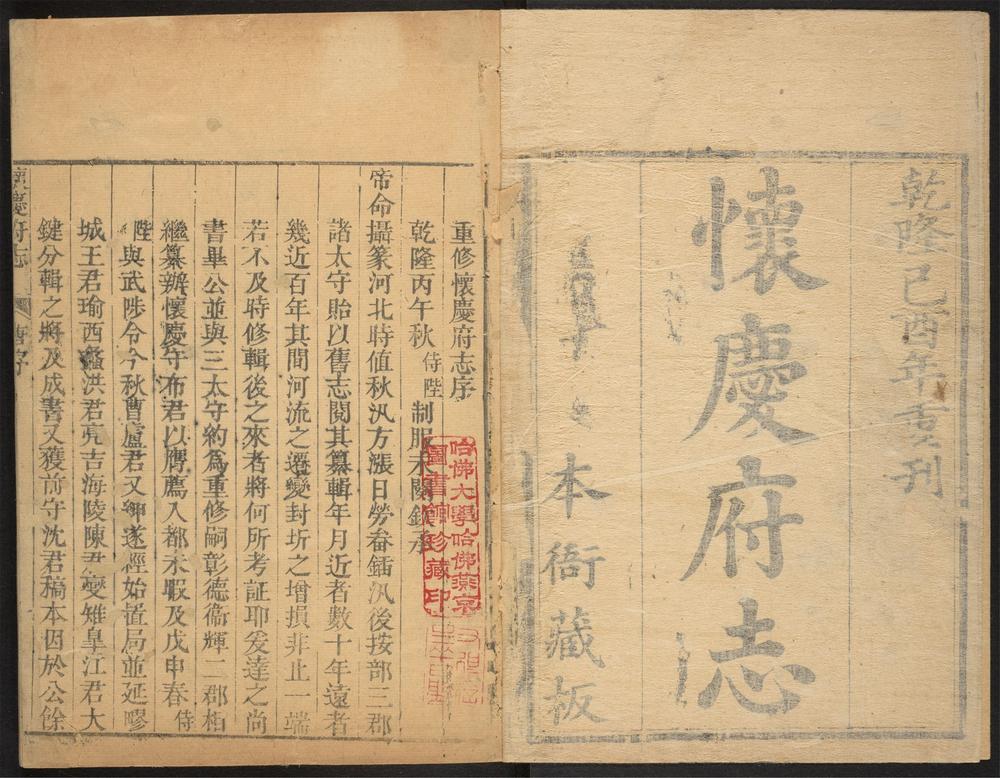 乾隆己酉年重刊
懷慶府志
本衙藏板
重修懷慶府志序
乾隆丙午秋侍陛制服未闋欽承
帝命攝篆河北時值秋汛方漲日勞畚鍤汛後按部三郡
諸太守貽以舊志閱其纂輯年月近者數十年遠者
幾近百年其間河流之遷變封圻之增損非止一端
若不及時修輯後之來者將何所考証耶爰達之尚
書畢公並與三太守約為重修嗣彰德衞輝二郡相
繼纂辦懷慶守布君以膺薦入都未暇及戊申春侍
陛與武陟令今秋曹盧君又卿遂經始置局並延瞜
城王君瑜西蠡洪君亮吉海陵陳君燮雉皐江君大
鍵分輯之將及成書又獲前守沈君稿本因於公餘
懷慶府志
哈佛大學哈佛燕京
圖書館珍藏印